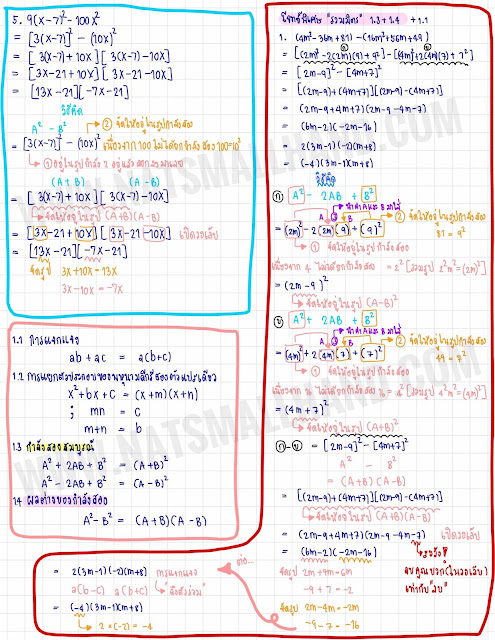 5. 9(x-7)² - 100x²
= [3(x-7)]² - (10x)²
= [3(x-7)+10x][3(x-7)-10x]
= [3x-21+10x][3x-21-10x]
= [13x-21][-7x-21]
วิธีคิด
A² - B² ② จัดให้อยู่ในรูปกำลังสอง
= [3(x-7)]² - (10x)² เนื่องจาก 100 ไม่ได้ยกกำลังสอง 100=10²
① อยู่ในรูปกำลัง 2 อยู่แล้ว
(A+B) (A-B)
= [3(x-7)+10x][3(x-7)-10x]
จัดให้อยู่ในรูป (A+B)(A-B)
= [3x-21+10x][3x-21-10x] เปิดวงเล็บ
= [13x-21][-7x-21]
จัดรูป 3x+10x = 13x
3x-10x = -7x
1.1 การแจกแจง
ab+ac = a(b+c)
1.2 การแยกตัวประกอบของพหุนามดีกรีสองตัวแปรเดียว
x²+bx+c = (x+m)(x+n)
; mn = c
m+n = b
1.3 กำลังสองสมบูรณ์
A² + 2AB + B² = (A+B)²
A² - 2AB + B² = (A-B)²
1.4 ผลต่างของกำลังสอง
A² - B² = (A+B)(A-B)
โจทย์พิเศษ "รวมมิตร" 1.3+1.4 +1.1
1. (4m²-36m+81) - (16m²+56m+49)
= [(2m)²-2(2m)(9)+9²] - [(4m)²+2(4m)(7)+7²]
= [2m-9]² - [4m+7]²
= [(2m-9)+(4m+7)][(2m-9)-(4m+7)]
= (2m-9+4m+7)(2m-9-4m-7)
= (6m-2)(-2m-16)
= 2(3m-1)(-2)(m+8)
= (-4)(3m-1)(m+8)
วิธีคิด
ก A² - 2AB + B²
= (2m)² - 2(2m)(9) + (9)² ② จัดให้อยู่ในรูปกำลังสอง
81 = 9²
① จัดให้อยู่ในรูปกำลังสอง
เนื่องจาก 4 ไม่ได้ยกกำลังสอง = 2² [รวมรูป 2²m² = (2m)²]
= (2m-9)²
จัดให้อยู่ในรูป (A-B)²
ข A² + 2AB + B²
= (4m)² + 2(4m)(7) + (7)² ② จัดให้อยู่ในรูปกำลังสอง
49 = 7²
① จัดให้อยู่ในรูปกำลังสอง
เนื่องจาก 16 ไม่ได้ยกกำลังสอง 16 = 4² [รวมรูป 4²m² = (4m)²]
= (4m+7)²
จัดให้อยู่ในรูป (A+B)²
ก-ข = [2m-9]² - [4m+7]²
A² - B²
= (A+B)(A-B)
= [(2m-9)+(4m+7)][(2m-9)-(4m+7)]
จัดให้อยู่ในรูป (A+B)(A-B)
= (2m-9+4m+7)(2m-9-4m-7) เปิดวงเล็บ
= (6m-2)(-2m-16)
ลบคูณบวก (ในวงเล็บ)
เท่ากับ "ลบ"
จัดรูป 2m+4m = 6m
-9+7 = -2
จัดรูป 2m-4m = -2m
-9-7 = -16
ต่อ...
= 2(3m-1)(-2)(m+8) การแจกแจง
a(b-c) a(b+c) "ดึงตัวร่วม"
= (-4)(3m-1)(m+8)
2×(-2) = -4
WWW.NATSMALLHAND.COM